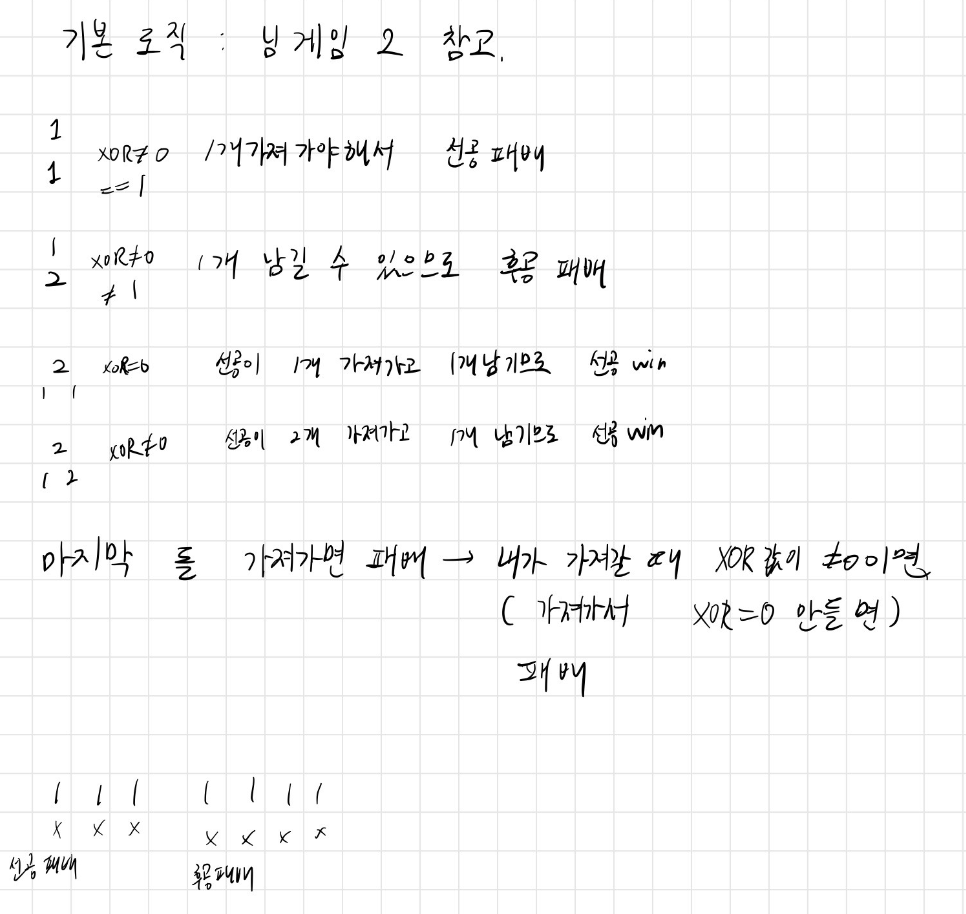 기본 로직 : 님게임 2 참고.
1
1 XOR≠0 1개가져가야해서 선공 패배
==1
1
2 XOR≠0 1개 남길 수 있으므로 후공 패배
≠ 1
2 XOR=0 선공이 1개 가져가고 1개남기므로 선공 win
1 1
2 XOR≠0 선공이 2개 가져가고 1개 남기므로 선공 win
1 2
마지막 돌 가져가면 패배 → 내가 가져갈 때 XOR 값이 ≠0이면
( 가져가서 XOR=0 만들면 )
패배
1 1 1 1 1 1 1
x x x x x x x
선공패배 후공패배